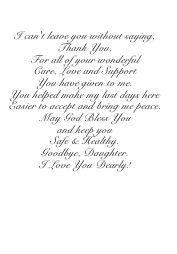 I can't leave you without saying,
Thank You,
For all of your wonderful
Care, Love and Support
You have given to me.
You helped make my last days here
Easier to accept and bring me peace.
May God Bless You
and keep you
Safe & Healthy.
Goodbye, Daughter.
I Love You Dearly!